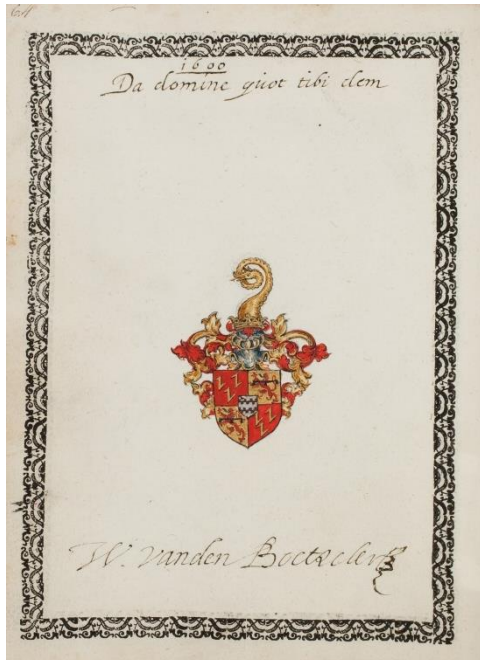 1600
Da domine quot tibi dem
W. vanden Boetzeler